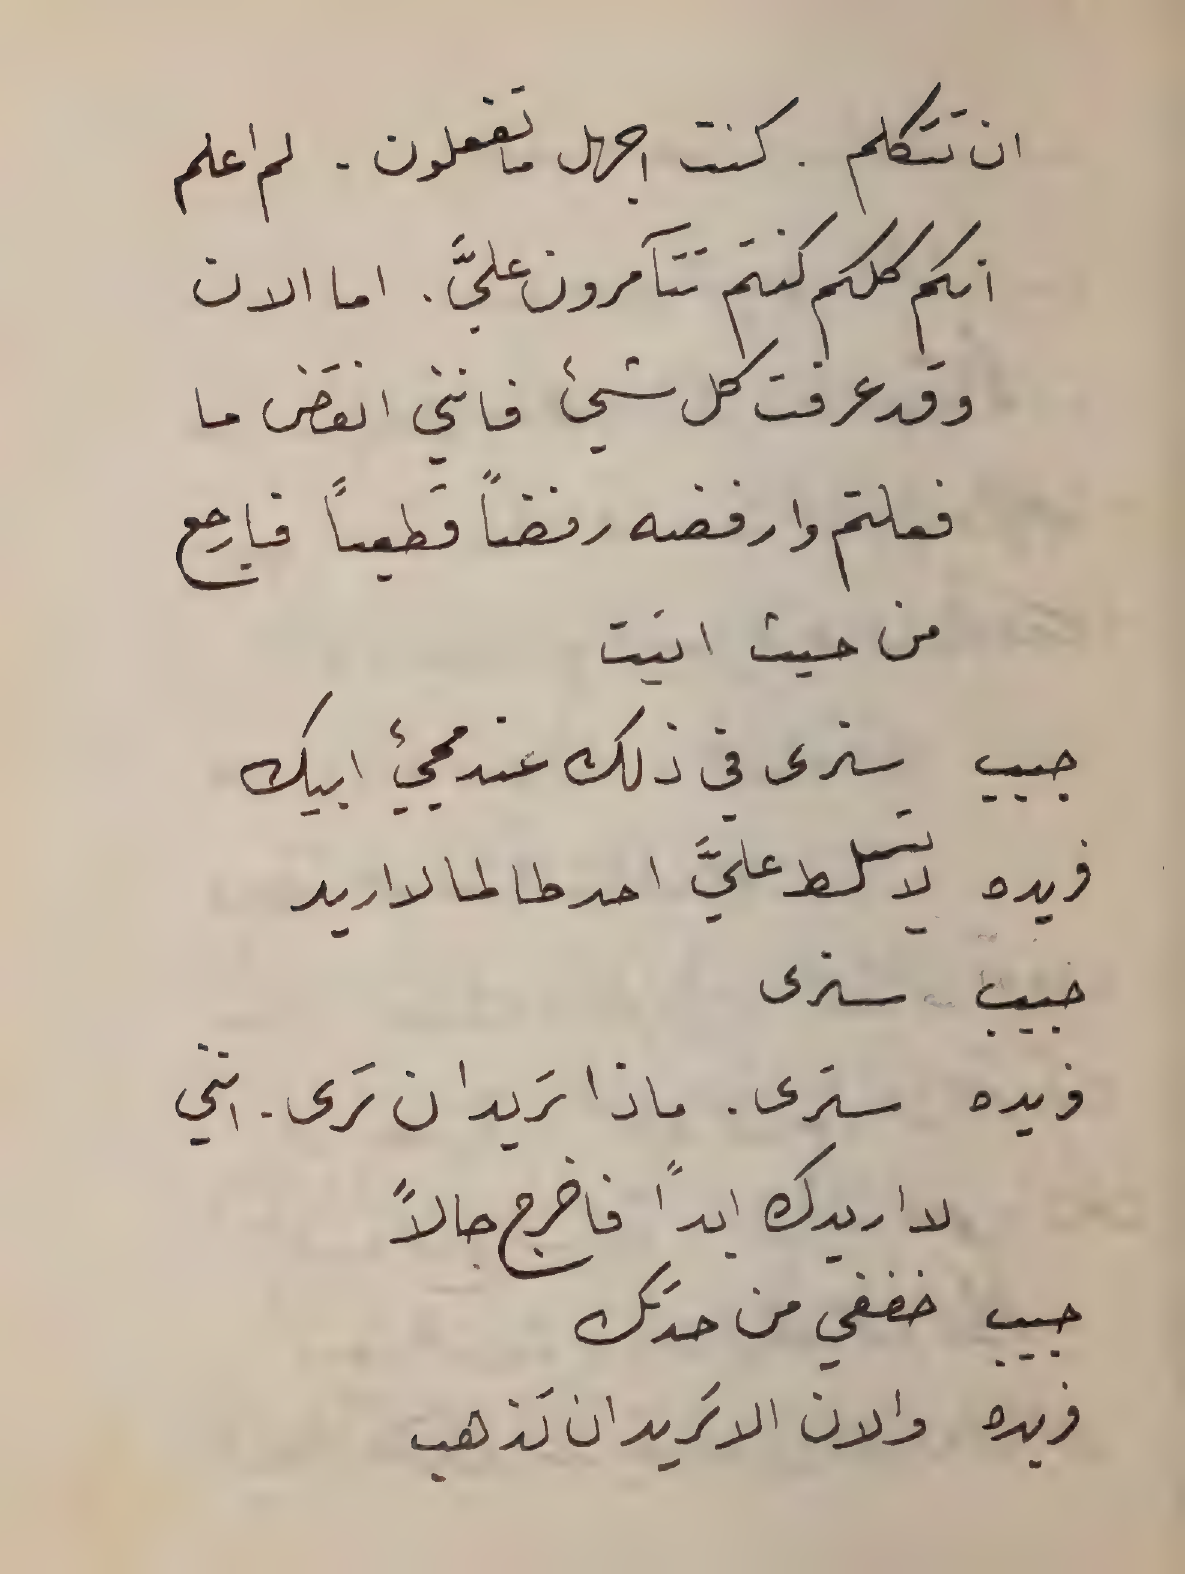 ان تتكلم . كنت اجهل ما تفعلون . لم اعلم
انكم كلكم كنتم تتآمرون عليَّ . اما الان
وقد عرفت كل شيئ فانني انقض ما
فعلتم وارفضه رفضاً قطعياً فارجع
من حيث اتيت
حبيب سنرى في ذلك عند مجيئ ابيك
فريده لا يتسلط عليَّ احد طالما لا اريد
حبيب سنرى
فريده سترى . ماذا تريد ان ترى . انني
لا اريدك ابداً فاخرج حالاً
حبيب خففي من حدتك
فريده والان الا تريد ان تذهب